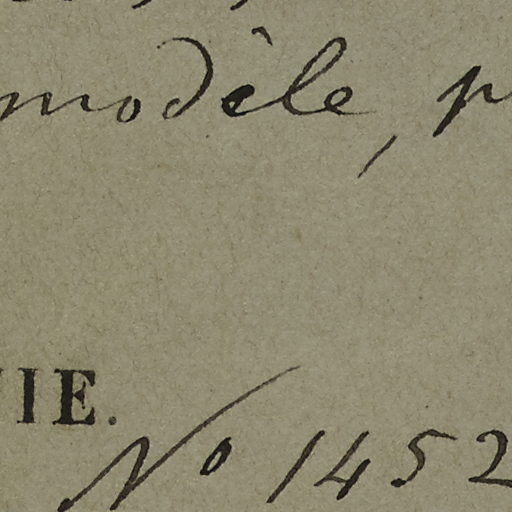 modèle, p
IE.
No 1452